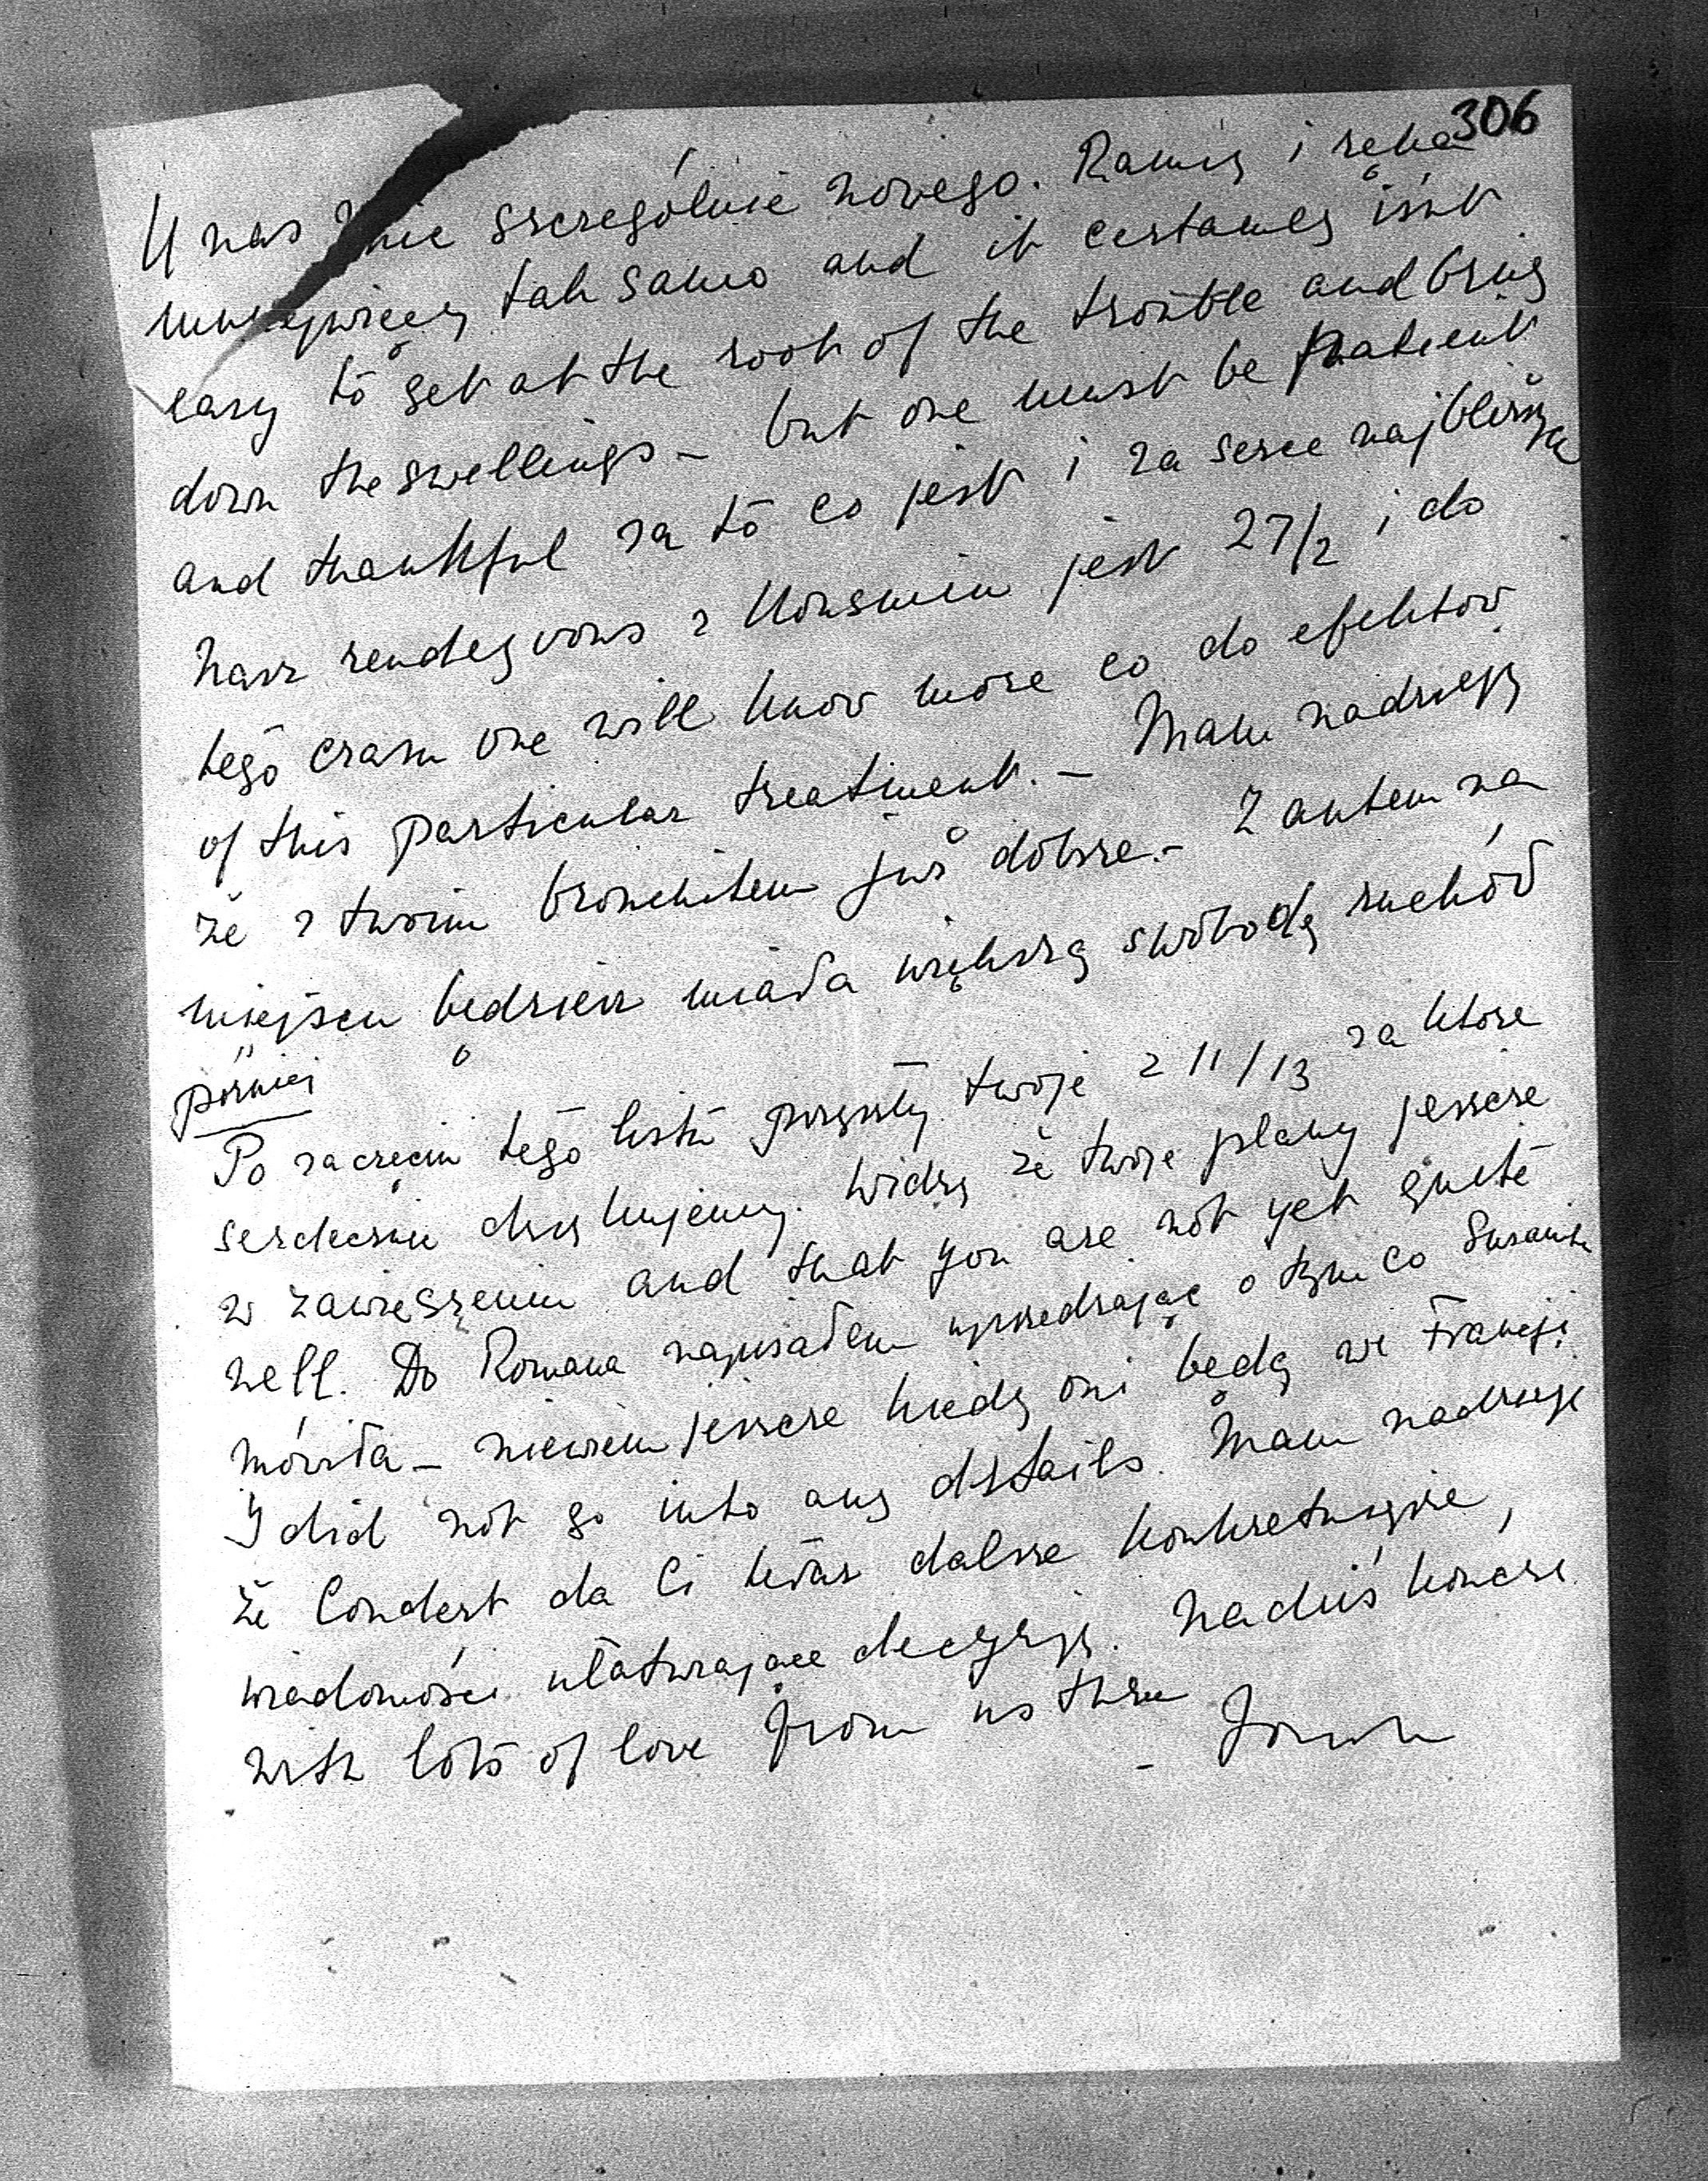 306
U nas nic szczególnie nowego. Ramię i ręka
mniejwięcej tak samo and it certainly isnt
easy to get at the root of the trouble and bring
down the swellings – but one must be patient
and thankful za to co jest i za serce najbliższe
nasz rendezvous z Kousmin jest 27/2 i do
tego czasu one will know more co do efektów
of this particular treatment. – Mam nadzieję
że z twoim bronchitem już dobrze. – Z autem na
miejscu będziesz miała większą swobodę ruchów
później
Po zaczęciu tego listu przyszły twoje z 11/13 za które
serdecznie dziękujemy. Widzę że twoje plany jeszcze
w zawieszeniu and that you are not yet quite
well. Do Romana napisałem uprzedzając o tym co Suzanne
mówiła – niewiem jeszcze kiedy oni będą we Francji
I did not go into any details. Mam nadzieję
że Condert da Ci teraz dalsze konkretniejsze,
wiadomości ułatwiające decyzję. Na dziś kończę
with lots of love from us three